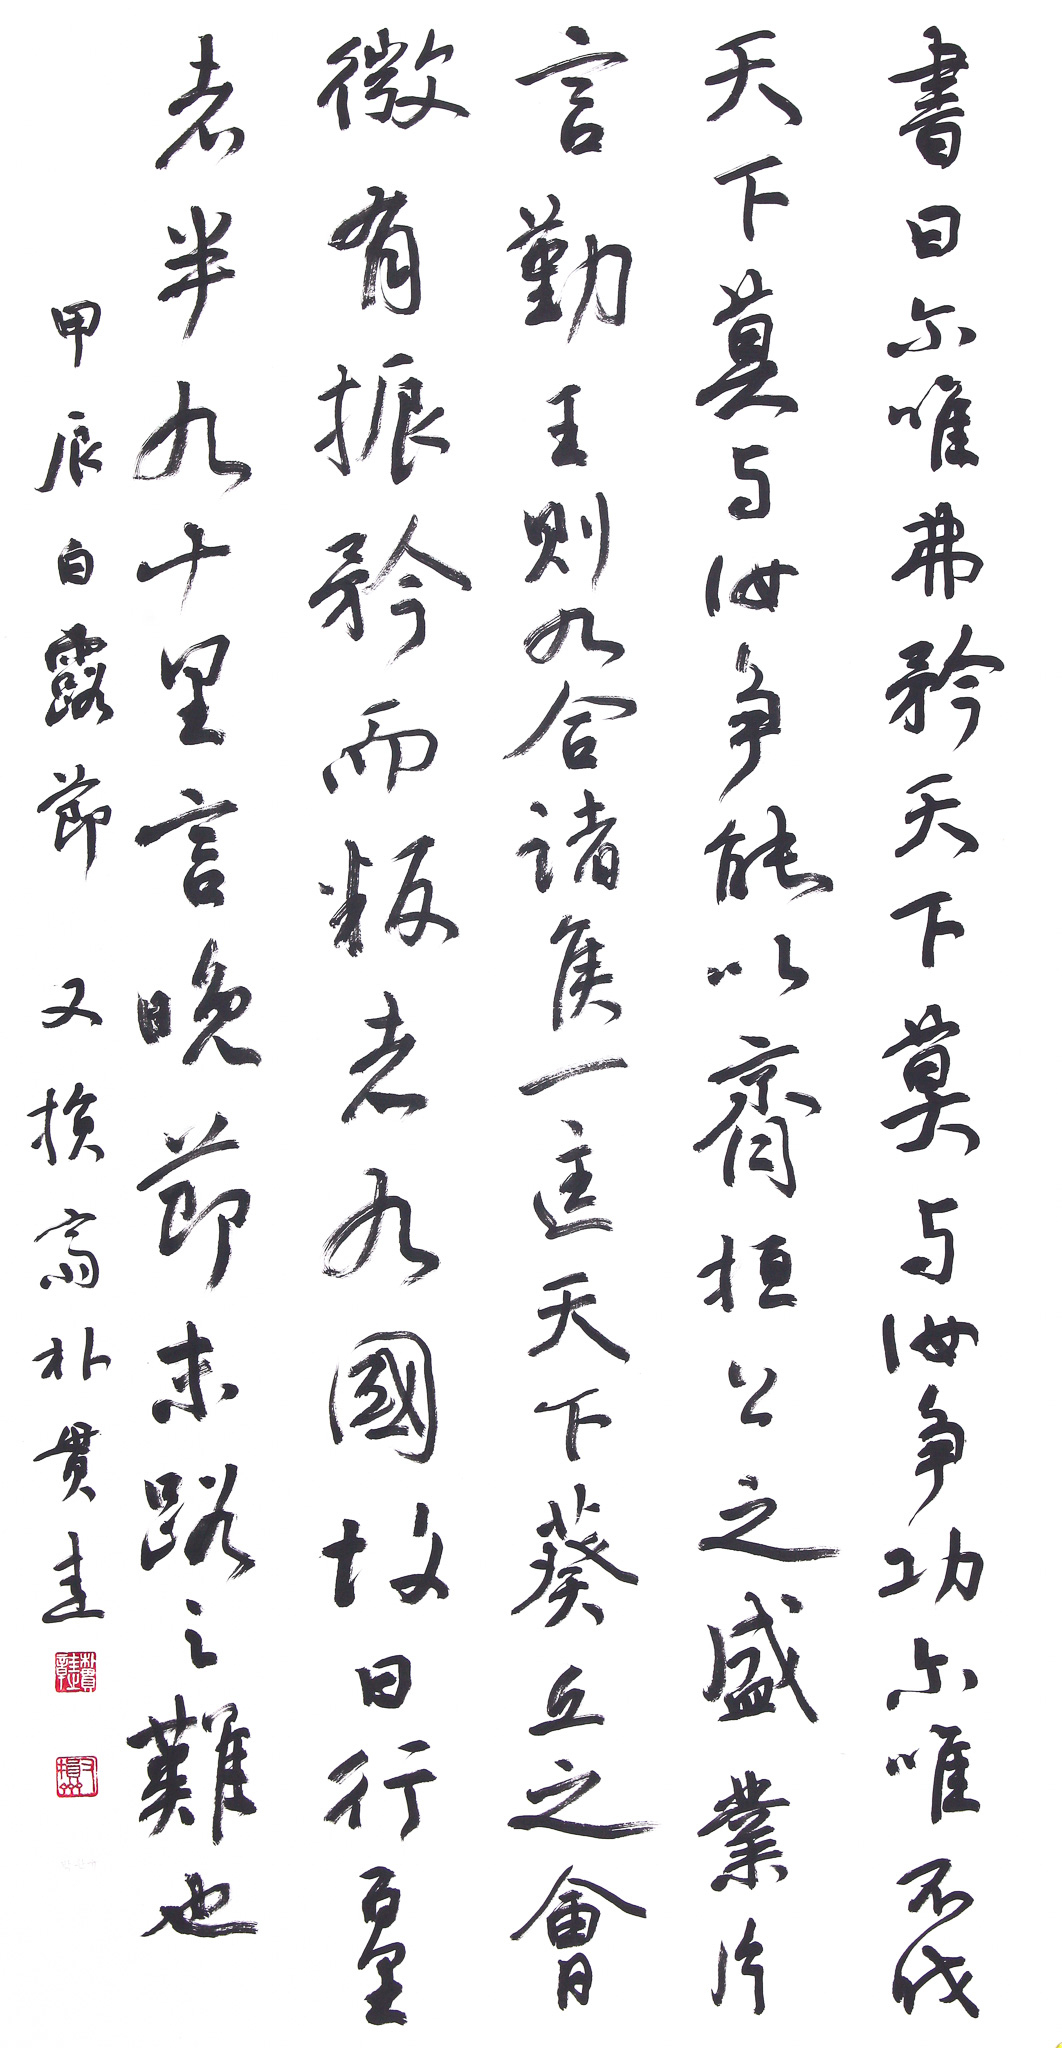 書曰尔唯弗矜天下莫与汝争功尔唯不伐
天下莫与汝争能以齊桓公之盛業片
言勤王則九合諸侯一匡天下葵丘之會
微有振矜而叛者九國故曰行百里
者半九十里言晚節末路之難也
甲辰白露節 又損齋朴貫
又損